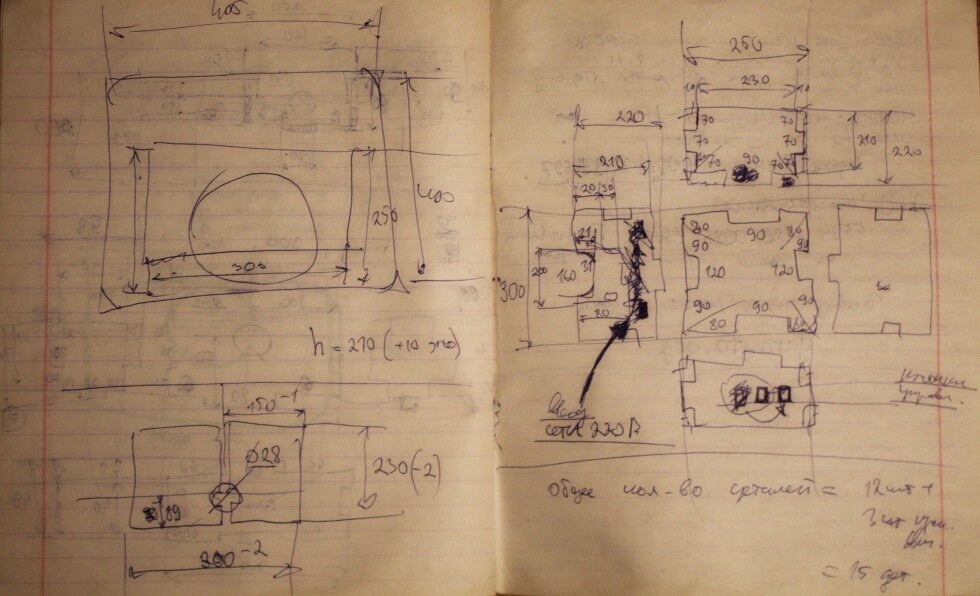 405
400
250
300
h = 210 (+10 дно)
150-1
Ø28
230(-2)
89
300-2
250
230
10
10
220
210
20
30
70
70
70
70
70
90
70
70
210
220
300
200
160
21
31
80
80
90
80
90
90
120
120
90
90
90
80
80
Ввод
сети 220В
кнопки
управл.
Общее кол-во деталей = 12шт +
3 шт
= 15 дет.